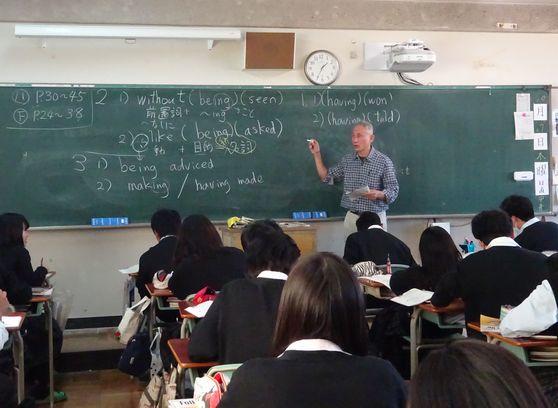 P30~45
P24~38
2 1) without (being)(seen)
前置詞+~ing
2) like (being)(asked)
動 + 目的
3 1) being adviced
2) making / having made
1. 1) (having)(won)
2) (having)(told)